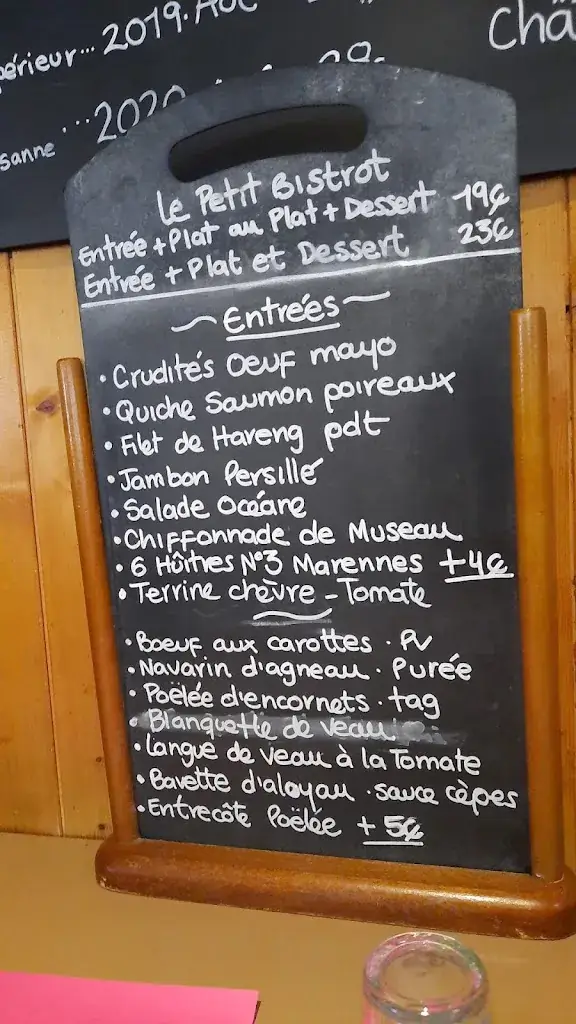 périeur... 2019.
Châ
sanne ... 2020
Le Petit Bistrot
Entrée + Plat au Plat + Dessert 19€
Entrée + Plat et Dessert 23€
~ Entrées ~
• Crudités Oeuf mayo
• Quiche Saumon poireaux
• Filet de Hareng pdt
• Jambon Persillé
• Salade Océane
• Chiffonnade de Museau
• 6 Hûitres N°3 Marennes +4€
• Terrine chèvre - Tomate
• Boeuf aux carottes . PV
• Navarin d'agneau . Purée
• Poëlée d'encornets . tag
• Blanquette de veau
• Langue de veau à la Tomate
• Bavette d'aloyau . sauce cèpes
• Entrecôte Poëlée + 5€